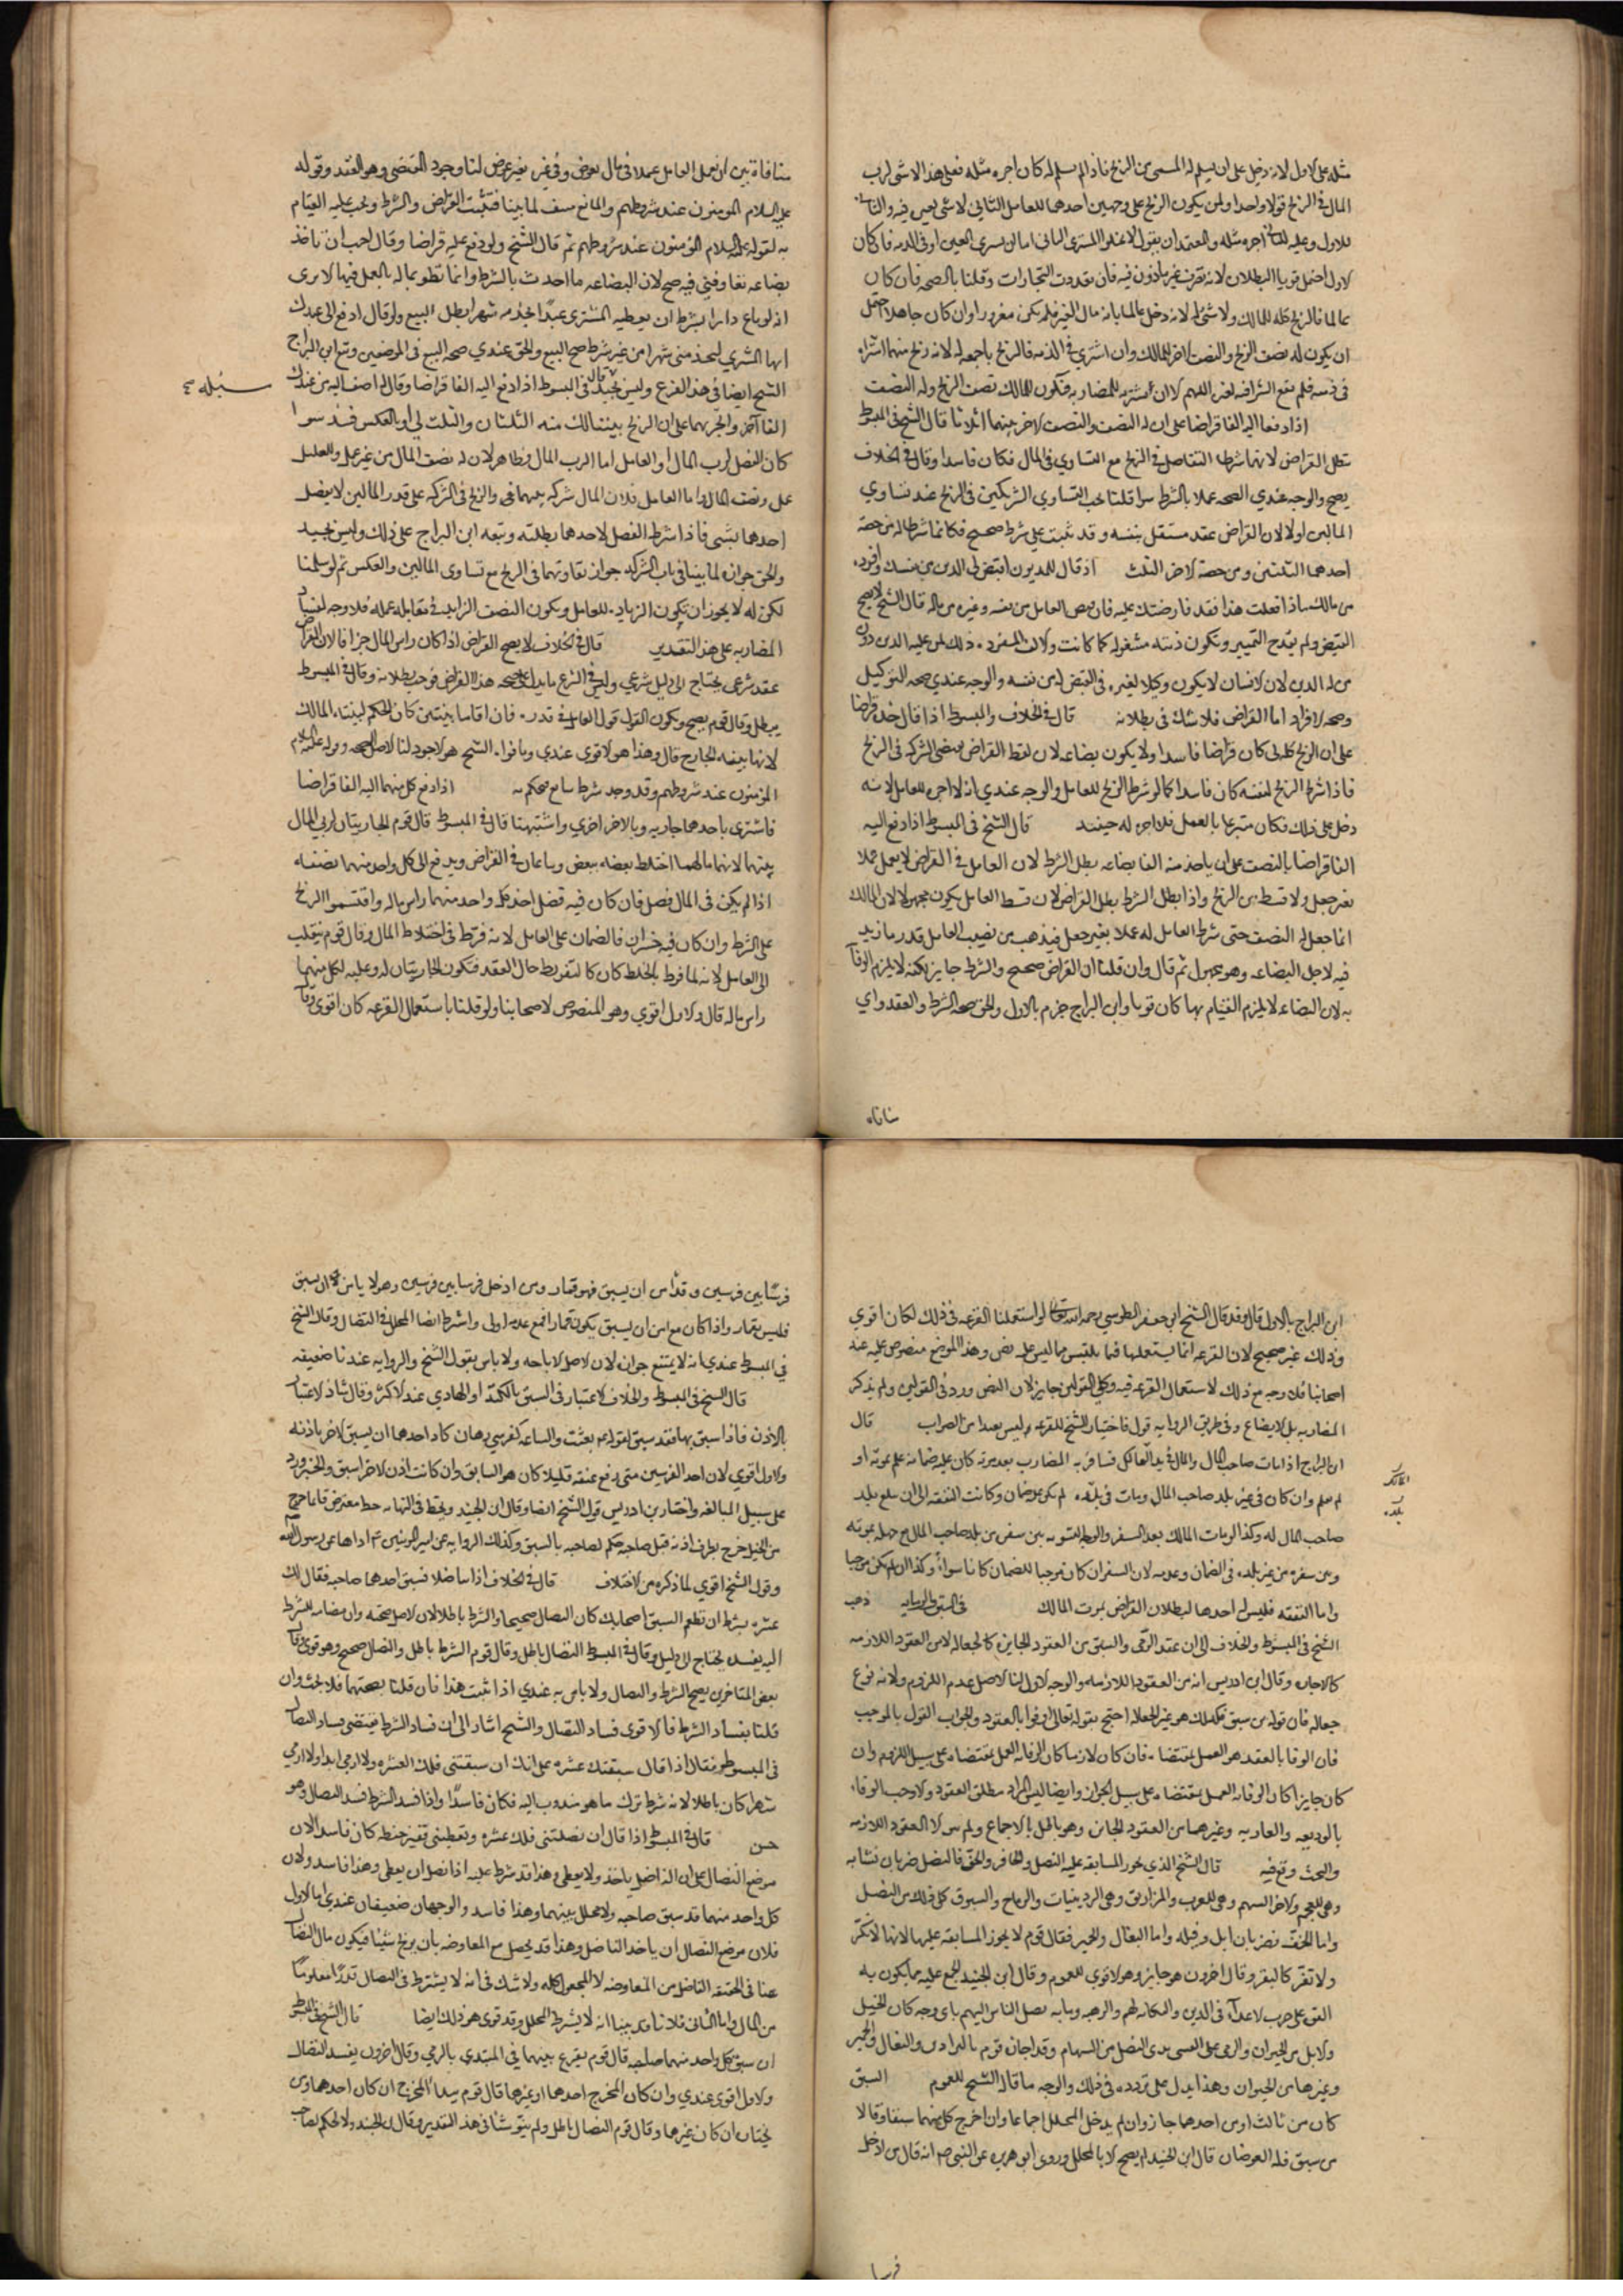 مثله على الاول لانه دخل على ان يسلم له المسمى من الربح فاذا لم يسلم له كان اجره مثله فعلى هذا لا شى لرب
المال فى الربح قولا واحدا ولمن يكون الربح على وجهين احدهما للعامل الثانى لا شى لغيره فيه والثانى
للاول وعليه للثانى اجره مثله والمعتمد ان نقول لا يخلو المشترى الثانى اما ان يشترى بالعين او فى الذمه فان كان
الاول احتمل قويا البطلان لانه تصرف غير ماذون فيه فان تعددت التجارات وقلنا بالصحه فان كان
عالما فالربح كله للمالك ولا شى له لانه دخل عالما بانه مال الغير فلم يكن مغرورا وان كان جاهلا احتمل
ان يكون له نصف الربح والنصف الاخر للمالك وان اشترى فى الذمه فالربح باجمعه له لانه ربح منهما اشتراه
فى ذمته فلم يقع الشرا فيه لغيره اللهم الا ان يشتريه للمضاربه فتكون للمالك نصف الربح وله النصف
اذا دفعا اليه الفا قراضا على ان له النصف والنصف الاخر بينهما اثلاثا قال الشيخ فى المبسوط
بطل القراض لانهما شرطا التفاضل فى الربح مع التساوى فى المال فكان فاسدا وقال فى الخلاف
يصح والوجه عندى الصحه عملا بالشرط سوا قلنا يجب التساوى الشريكين فى الربح عند تساوى
المالين او لا لان القراض عقد مستقل بنفسه وقد ثبت على شرط صحيح فكانما شرطا له من حصه
احدهما الثلثين ومن حصه الاخر الثلث اذا قال للمديون اقبض لى الدين من نفسك وافرده
من مالك فاذا فعلت هذا فقد قارضتك عليه فان قبض العامل من نفسه وغيره من ماله قال الشيخ لا يصح
القبض ولم يقدح التمييز وتكون ذمته مشغوله كما كانت والالف المفرده ذلك لمن عليه الدين دون
من له الدين لان الانسان لا يكون وكيلا لغيره فى القبض له من نفسه والوجه عندى صحه التوكيل
وصحه الافراد اما القراض فلا شك فى بطلانه قال فى الخلاف والمبسوط اذا قال خذه قراضا
على ان الربح كله لى كان قراضا فاسدا ولا يكون بضاعه لان لفظ القراض يقتضى الشركه فى الربح
فاذا شرط الربح لنفسه كان فاسدا كما لو شرط الربح للعامل والوجه عندى انه لا اجره للعامل لانه
دخل على ذلك فكان متبرعا بالعمل فلا اجره له حينئذ قال الشيخ فى المبسوط اذا دفع اليه
الفا قراضا بالنصف على ان ياخذ منه الفا بضاعه بطل الشرط لان العامل فى القراض لا يعمل عملا
بغير جعل ولا قسط من الربح واذا بطل الشرط بطل القراض لان قسط العامل يكون مجهولا لان المالك
انما جعل له النصف حتى شرط العامل له عملا بغير جعل فيذهب من نصيب العامل قدر ما زيد
فيه لاجل البضاعه وهو مجهول ثم قال وان قلنا ان القراض صحيح والشرط جايز لكنه لا يلزم الوفا
به لان البضاعه لا يلزم القيام بها كان قويا وابن البراج جزم بالاول والحق صحه الشرط والعقد واى
منافاه
منافاة بين ان يعمل العامل عملا فى مال بعوض وفى غيره بغير عوض لنا وجود المقتضى وهو العقد وقوله
عليه السلام المومنون عند شروطهم والمانع منتف لما بينا فثبت القراض والشرط ويجب عليه القيام
به لقوله عليه السلام المؤمنون عند شروطهم ثم قال الشيخ ولو دفع عليه قراضا وقال احب ان تاخذ
بضاعه نعاونى فيه صح لان البضاعه ما اخذت بالشرط وانما تطوع بماله بالعمل فيها الا ترى
انه لو باع دارا بشرط ان يعطيه المشترى عبدا يخدمه شهرا بطل البيع ولو قال ادفع الى عبدك
ايها المشترى ليخدمنى شهرا من غير شرط صح البيع والحق عندى صحه البيع فى الموضعين وتبع ابن البراج
الشيخ ايضا فى هذا الفرع وليس بجيد قال فى المبسوط اذا دفع اليه الفا قراضا وقال له اضف اليه من عندك
الفا آخر واتجر بهما على ان الربح بيننا لك منه الثلثان والثلث لى او بالعكس فسد سوا
كان الفضل لرب المال او العامل اما لرب المال فظاهر لان له نصف المال من غير عمل وللعامل
عمل ونصف المال واما العامل فلان المال شركه بينهما والربح فى الشركه على قدر المالين لا يفضل
احدهما بشى فاذا شرط الفضل لاحدهما بطلت وتبعه ابن البراج على ذلك وليس بجيد
والحق جوازه لما بينا فى باب الشركه جواز تفاوتهما فى الربح مع تساوى المالين والعكس ثم لو سلمنا
لكن له لا يجوز ان تكون الزياده للعامل ويكون النصف الزايد فى مقابله عمله فلا وجه لفساد
المضاربه على هذا التقدير قال فى الخلاف لا يصح القراض اذا كان راس المال جزافا لان القراض
عقد شرعى يحتاج الى دليل شرعى وليس فى الشرع ما يدل على صحه هذا القراض فوجب بطلانه وقال فى المبسوط
يبطل وقال قوم يصح ويكون القول قول العامل فى قدره فان اقاما بينتين كان الحكم لبينه المالك
لانها بينه الخارج قال وهذا هو الاقوى عندى وما قواه الشيخ هو الاجود لنا الاصل الصحه وقوله عليه السلام
المؤمنون عند شروطهم وقد وجد شرط سايغ فيحكم به اذا دفع كل منهما اليه الفا قراضا
فاشترى باحدهما جاريه وبالاخر اخرى واشتبهتا قال فى المبسوط قال قوم الجاريتان لربى المال
بينهما لانهما مالهما اختلط بعضه ببعض ويباعان فى القراض ويدفع الى كل واحد منهما نصفه
اذا لم يكن فى المال فضل فان كان فيه فضل اخذ كل واحد منهما راس ماله واقتسموا الربح
على الشرط وان كان فيه خسران فالضمان على العامل لانه فرط فى اختلاط المال وقال قوم ينقلب
الى العامل لانه لما فرط بالخلط كان كالتفريط حال العقد فتكون الجاريتان له وعليه لكل منهما
راس ماله قال والاول اقوى وهو المنصوص لاصحابنا ولو قلنا باستعمال القرعه كان اقوى وقال
ابن البراج بالاول قال وقد قال الشيخ ابى جعفر الطوسى رحمه الله تعالى لو استعملنا القرعه فى ذلك لكان اقوى
وذلك غير صحيح لان القرعه انما يستعملها فيما يلتبس مما ليس عليه نص وهذا الموضع منصوص عليه عند
اصحابنا فلا وجه مع ذلك لاستعمال القرعه فيه وكلى القولين جايز لان النص ورد فى القولين ولم يذكر
المضاربه بل الابضاع وفى طريق الروايه قول فاختيار الشيخ للقرعه ليس بعيدا من الصواب قال
ابن البراج اذا مات صاحب المال والمال فى يد العامل فسافر به المضارب بعد موته كان عليه ضمانه علم بموته او
لم يعلم وان كان فى غير بلد صاحب المال ومات فى بلده لم يكن عليه ضمان وكانت النفقه الى ان يبلغ بلد
صاحب المال له وكذا لو مات المالك بعد السفر والوجه التسويه بين سفره من بلد صاحب المال مع جهله بموته
وبين سفره من غير بلده فى الضمان وعدمه لان السفر ان كان موجبا للضمان كانا سواء وكذا ان لم يكن موجبا
واما النفقه فليس له احدهما لبطلان القراض بموت المالك فى السبق والرمايه ذهب
الشيخ فى المبسوط والخلاف الى ان عقد الرمى والسبق من العقود الجايزه كالجعاله لا من العقود اللازمه
كالاجاره وقال ابن ادريس انه من العقود اللازمه والوجه الاول لنا الاصل عدم اللزوم ولانه نوع
جعاله فان قوله من سبق فله كذلك هو عين الجعاله احتج بقوله تعالى اوفوا بالعقود والجواب القول بالموجب
فان الوفا بالعقد هو العمل بمقتضاه فان كان لازما كان الوفا به العمل بمقتضاه على سبيل اللزوم وان
كان جايزا كان الوفا به العمل بمقتضاه على سبيل الجواز وايضا ليس المراد مطلق العقود والا وجب الوفاء
بالوديعه والعاريه وغيرهما من العقود الجايزه وهو باطل بالاجماع ولم يبق الا العقود اللازمه
والبحث وقع فيه قال الشيخ الذى يجوز المسابقه عليه النصل والحافر والخف فالنصل ضربان نشابه
وهى للعجم والاخر السهم وهى للعرب والمزاريق وهى الردينيات والرماح والسيوف كل ذلك من النصل
واما الخف فضربان ابل وفيله واما البغال والحمير فقال قوم لا يجوز المسابقه عليها لانها لا تكر
ولا تفر كالبقر وقال اخرون هو جايز وهو الاقوى للعموم وقال ابن الجنيد اجمع عليه مما يكون به
القوى على حرب الاعداء فى الدين والنكايه لهم والرهبه وما به يصل الناس اليهم باى وجه كان الخيل
والابل من الحيوان والرمى على القسى بذى النصل من السهام وقد اجازه قوم بالبراذين والبغال والحمير
وغيرها من الحيوان وهذا يدل على تردده فى ذلك والوجه ما قاله الشيخ للعموم السبق
كان من ثالث او من احدهما جاز وان لم يدخل المحلل اجماعا وان اخرج كل منهما سبقا وقالا
من سبق فله العوضان قال ابن الجنيد لم يصح الا بالمحلل وروى ابو هريره عن النبى صم انه قال من ادخل
فرسا
فرسا بين فرسين وقد امن ان يسبق فهو قمار ومن ادخل فرسا بين فرسين وهو لا يامن ان يسبق
فليس بقمار واذا كان مع امن ان يسبق يكون قمارا فمع عدمه اولى واشترط ايضا المحلل فى النضال وقال الشيخ
فى المبسوط عندى انه لا يمتنع جوازه لان الاصل الاباحه ولا باس بقول الشيخ والروايه عندنا ضعيفه
قال الشيخ فى المبسوط والخلاف الاعتبار فى السبق بالكتد او الهادى عند الاكثر وقال شاذ الاعتبار
بالاذن فاذا سبق بها فقد سبق لقوله بعثت والساعه كفرسى رهان كاد احدهما ان يسبق الاخر باذنه
والاول اقوى لان احد الفرسين متى رفع عنقه قليلا كان هو السابق وان كانت اذن الاخر اسبق والخبر ورد
على سبيل المبالغه واختار ابن ادريس قول الشيخ ايضا وقال ابن الجنيد ويخط فى النهايه خط معترض فايما خرج
من الخيل خرج بطرف اذنه قبل صاحبه حكم لصاحبه بالسبق وكذلك الروايه عن امير المومنين عم اداها عن رسول الله
وقول الشيخ اقوى لما ذكره من الاختلاف قال فى الخلاف اذا تناضلا فسبق احدهما صاحبه فقال لك
عشره بشرط ان تطعم السبق اصحابك كان النضال صحيحا والشرط باطلا لان الاصل صحته وان مضامه الشرط
اليه يفسده يحتاج الى دليل وقال فى المبسوط النضال باطل وقال قوم الشرط باطل والنضال صحيح وهو قوى وقال
بعض المتاخرين يصح الشرط والنضال ولا باس به عندى اذا ثبت هذا فان قلنا بصحتهما فلا بحث وان
قلنا بفساد الشرط فالاقوى فساد النضال والشيخ اشار الى ان فساد الشرط يقتضى فساد النضال
فى المبسوط فقال اذا قال سبقتك عشره على انك ان سبقتنى فلك العشره ولا ارمى ابدا او لا ارمى
شهرا كان باطلا لانه شرط ترك ما هو مندوب اليه فكان فاسدا واذا فسد الشرط فسد النضال وهو
حسن قال فى المبسوط اذا قال ان نضلتنى فلك عشره وتعطينى قفيز حنطه كان فاسدا لان
موضع النضال على ان الناضل ياخذ ولا يعطى وهذا قد شرط عليه اذا نضل ان يعطى وهذا فاسد ولان
كل واحد منهما قد سبق صاحبه ولا محلل بينهما وهذا فاسد والوجهان ضعيفان عندى اما الاول
فلان موضع النضال ان ياخذ الناضل وهذا قد يحصل مع المعاوضه بان يربح شيئا فيكون مال النضال
هنا فى الحقيقه الفاضل من المعاوضه لا المجعول كله ولا شك فى انه لا يشترط فى النضال قدرا معلوما
من المال واما الثانى فلانا قد بينا انه لا يشترط المحلل وقد قوى هو ذلك ايضا قال الشيخ فى المبسوط
ان سبق كل واحد منهما صاحبه قال قوم يقرع بينهما فى المبتدى بالرمى وقال اخرون يفسد النضال
والاول اقوى عندى وان كان المخرج احدهما او غيرهما قال قوم يبدا المخرج ان كان احدهما ومن
يختار ان كان غيرهما وقال قوم النضال باطل ولم يقو شيئا فى هذا التقدير وقال ابن الجنيد والحكم لصاحب